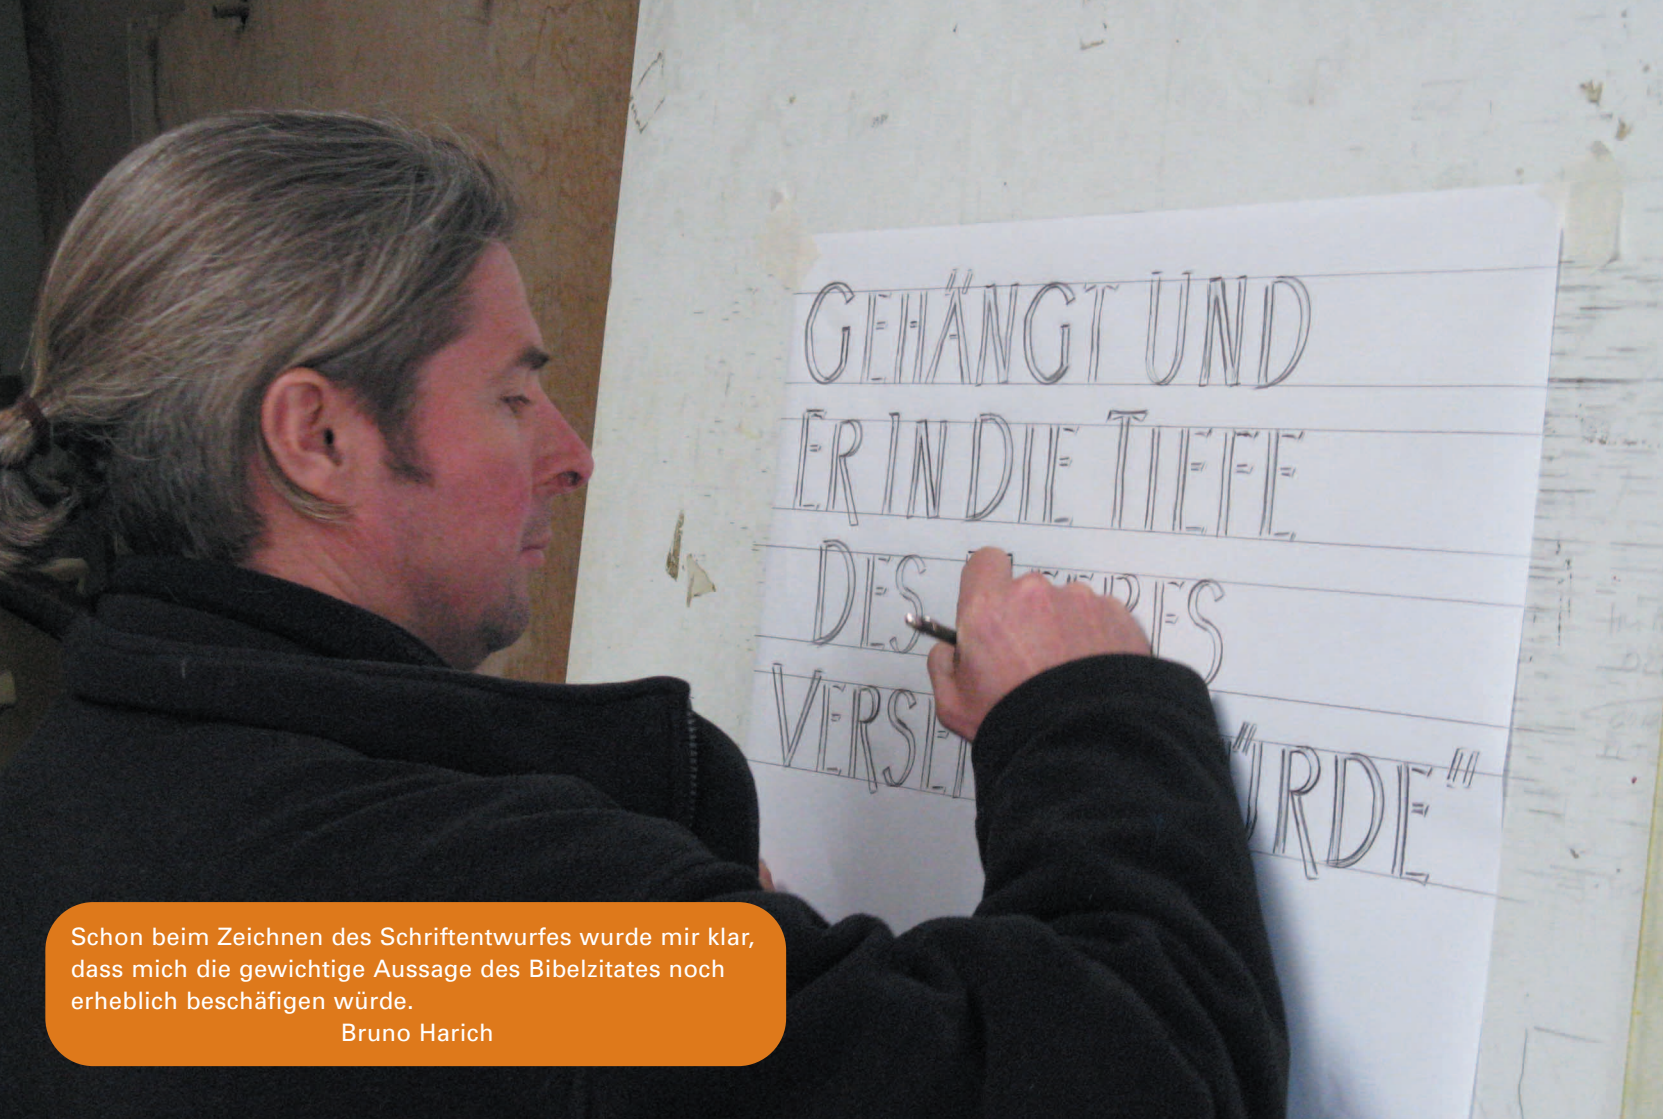 GEHÄNGT UND
ER IN DIE TIEFE
DES
VERSE
Schon beim Zeichnen des Schriftentwurfes wurde mir klar,
dass mich die gewichtige Aussage des Bibelzitates noch
erheblich beschäfigen würde.
Bruno Harich